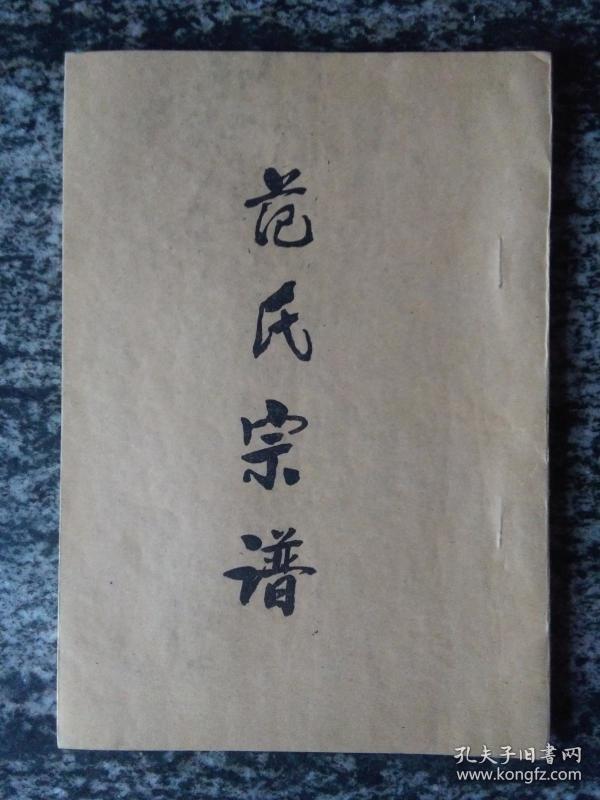 范氏宗谱
孔夫子旧書网
www.kongfz.com